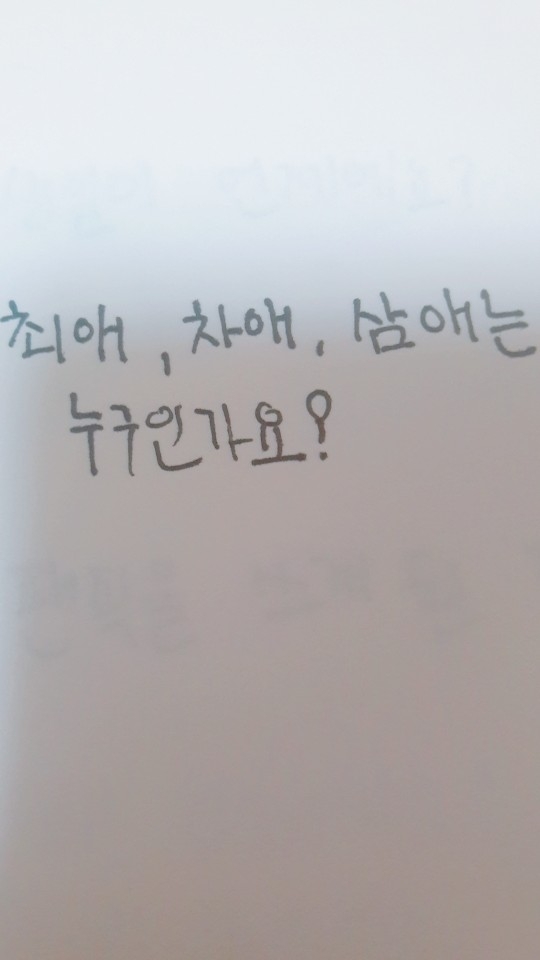 최애, 차애, 삼애는
누구인가요?